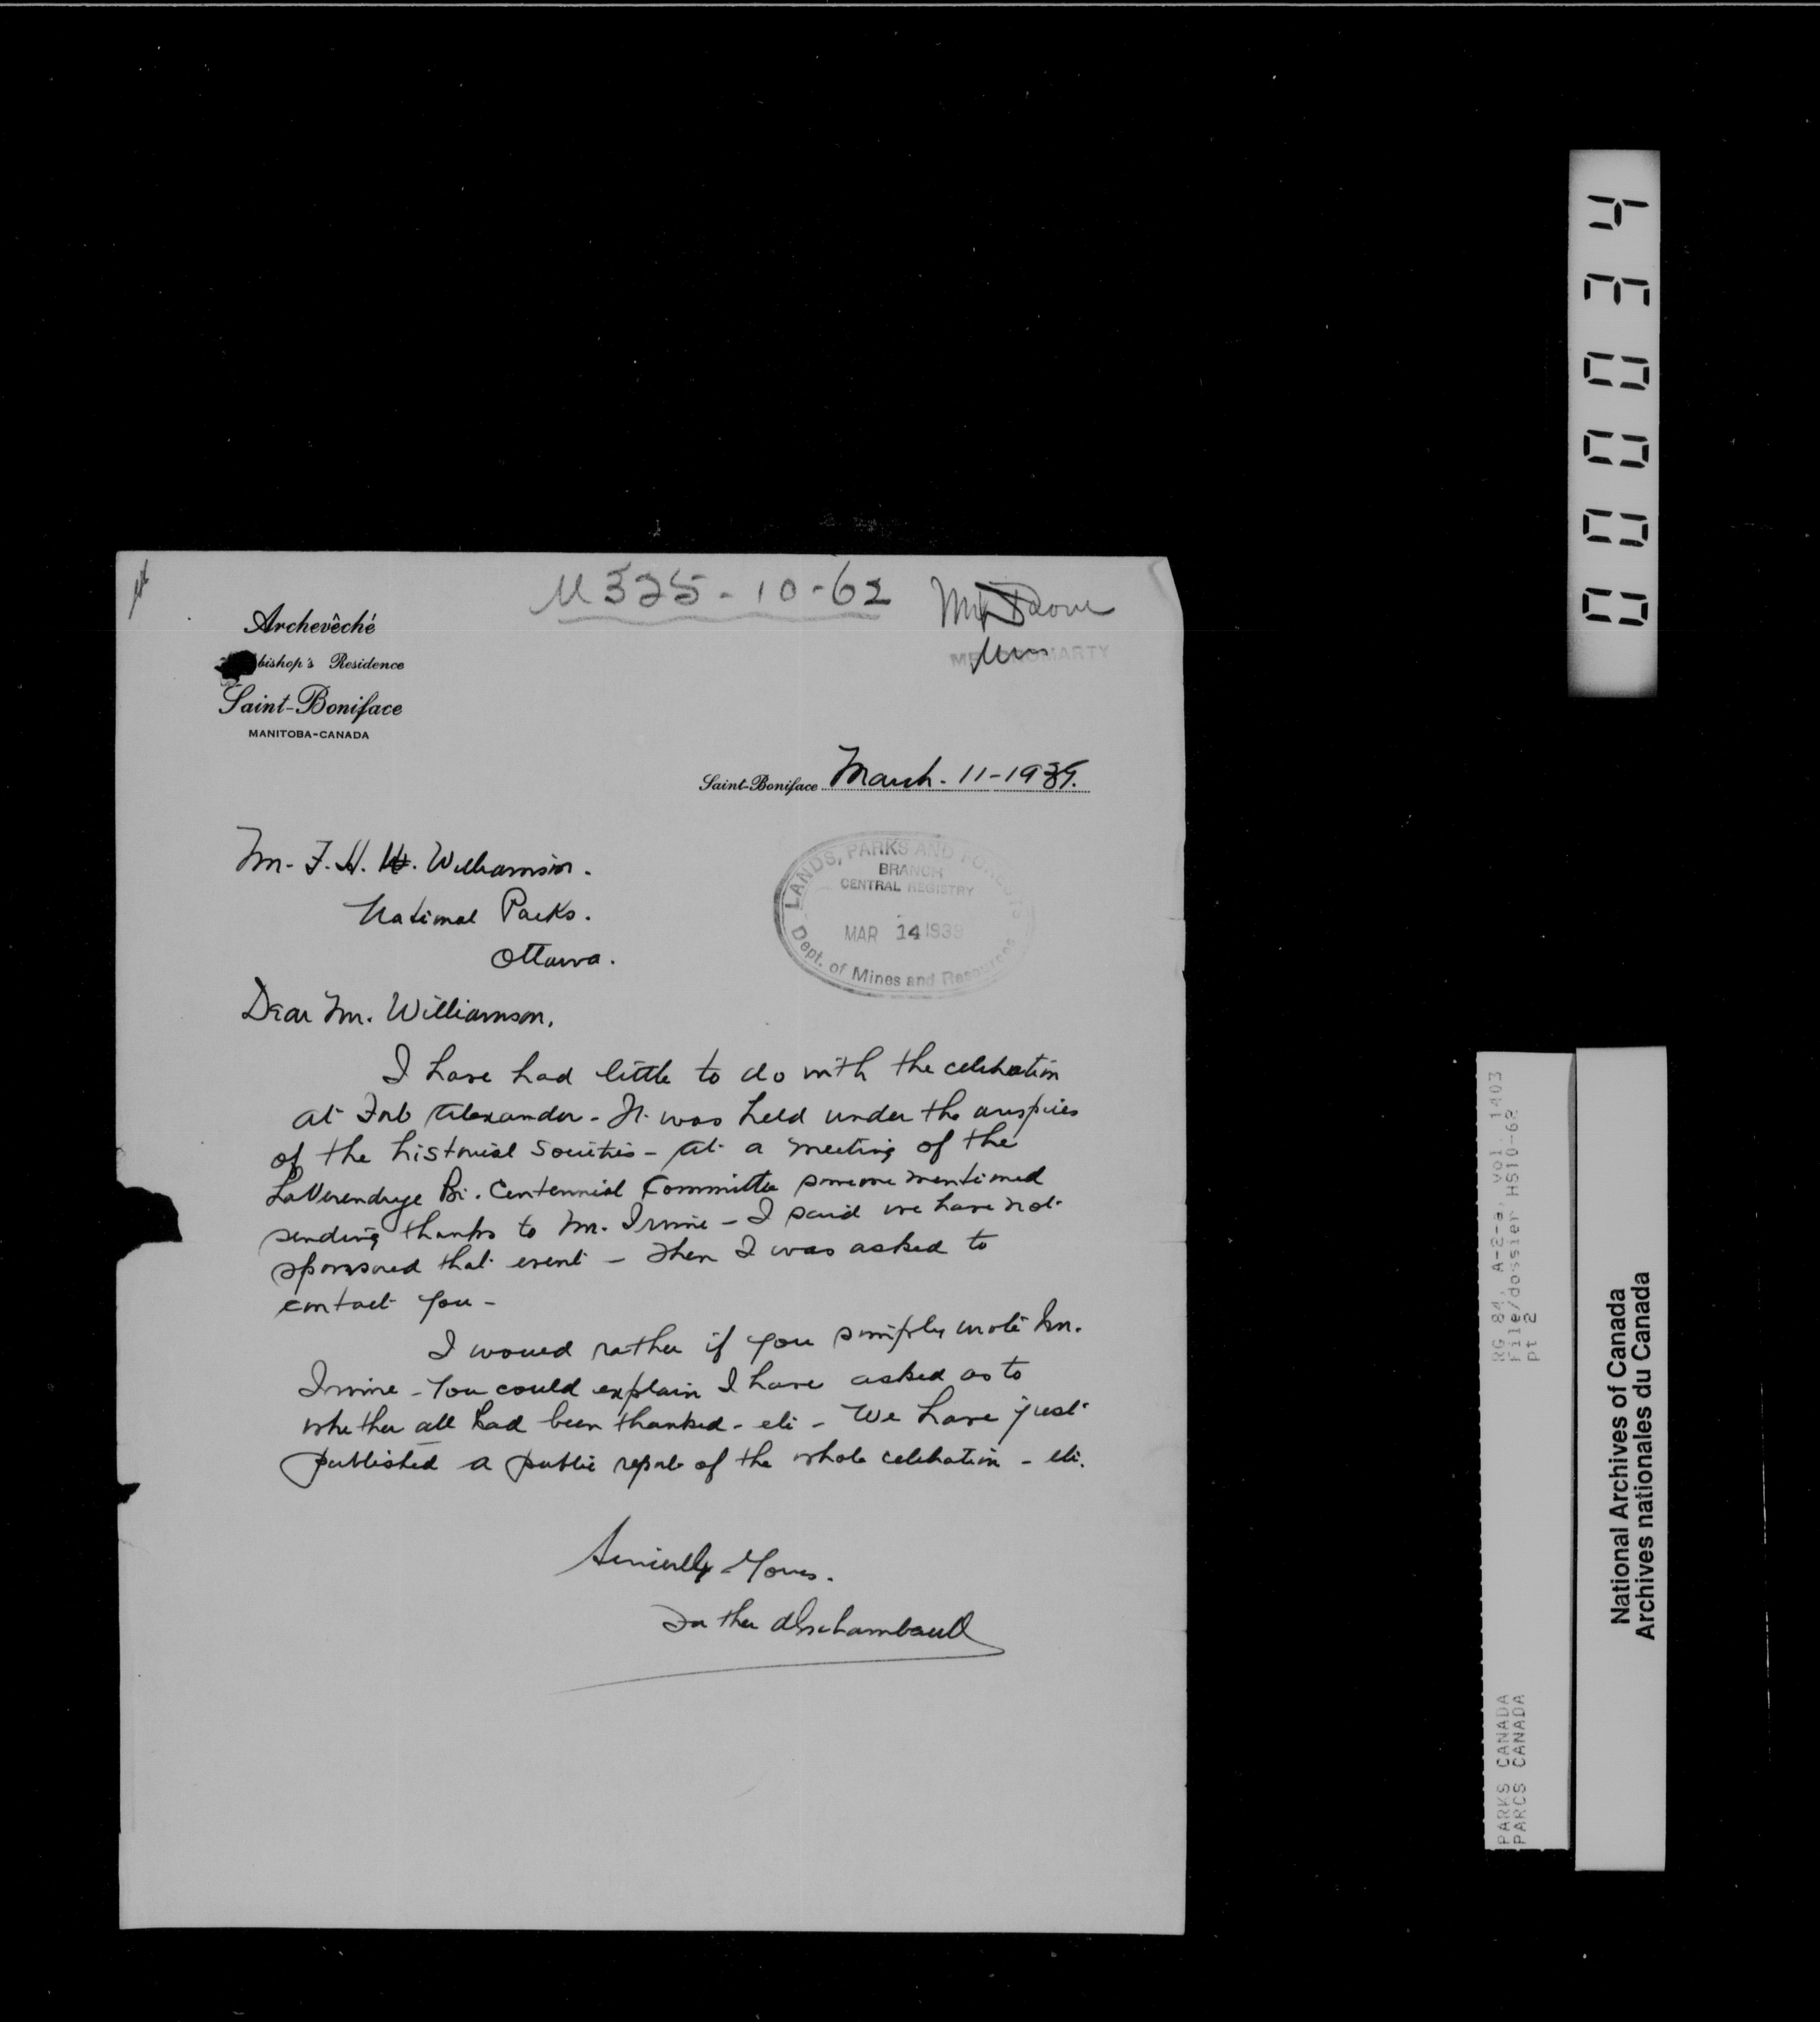 M 325-10-62
Archevêché
bishop's Residence
Saint-Boniface
MANITOBA-CANADA
Saint-Boniface March. 11-1939.
Mr. F. H. Williamson.
National Parks.
Ottawa.
LANDS, PARKS AND FORESTS
BRANCH
CENTRAL REGISTRY
MAR 14 1939
Dept. of Mines and Resources
Dear Mr. Williamson,
I have had little to do with the celebration
at Fort Alexander - It was held under the auspices
of the historical Societies - At a meeting of the
LaVerendrye Bi. Centennial Committee someone mentioned
sending thanks to Mr. Irvine - I said we have not
sponsored that event - Then I was asked to
contact you -
I would rather if you simply wrote Mr.
Irvine - You could explain I have asked as to
whether all had been thanked - etc - We have just
published a public report of the whole celebration - etc.
Sincerely Yours.
Father d'Eschambault
00034
RG 84, A-2-a, vol. 1403
File/dossier HS10-62
pt 2
PARKS CANADA
PARCS CANADA
National Archives of Canada
Archives nationales du Canada